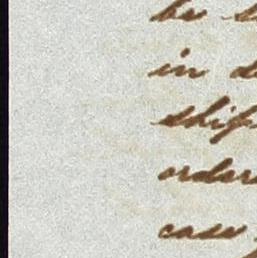 be s
in d
ship
orders
case